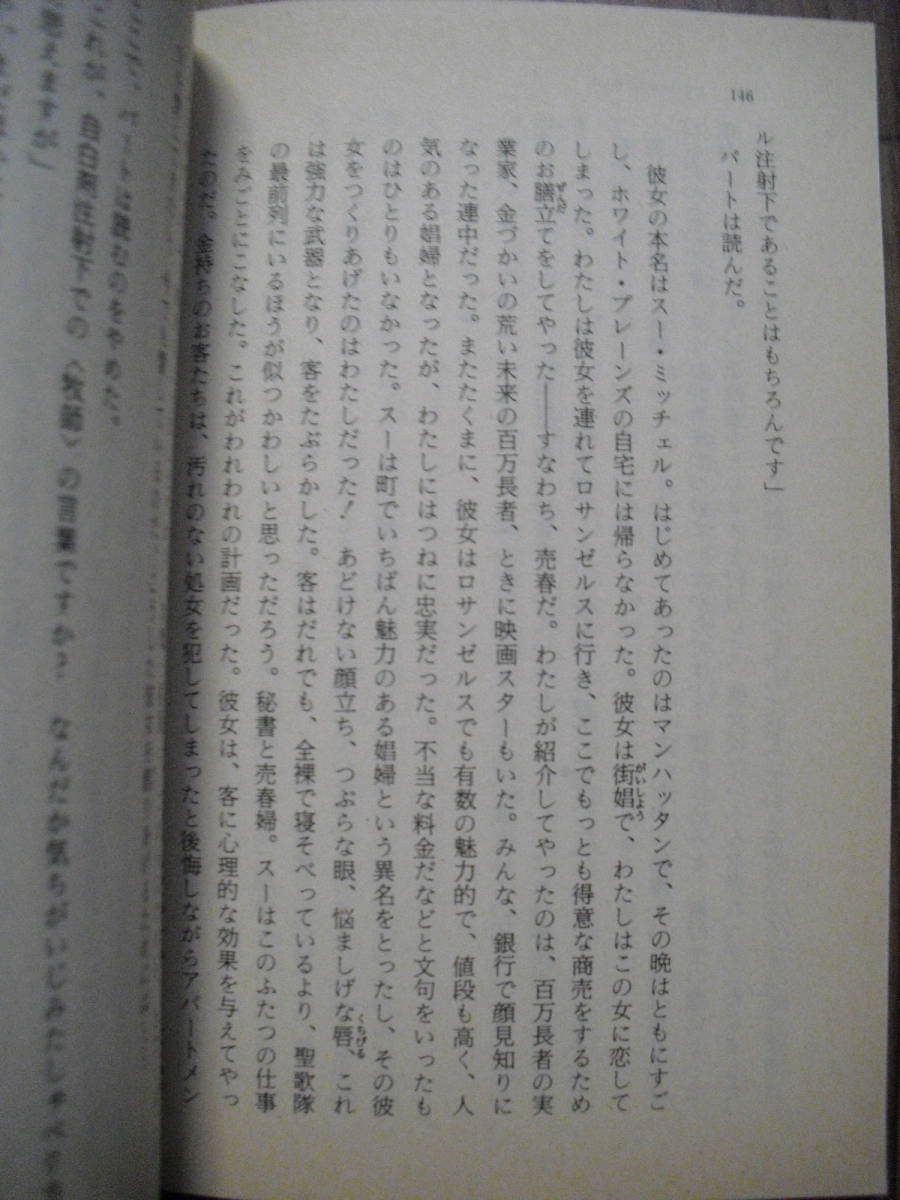 146
ル注射下であることはもちろんです」
バートは読んだ。
彼女の本名はスー・ミッチェル。はじめてあったのはマンハッタンで、その晩はともにすご
し、ホワイト・プレーンズの自宅には帰らなかった。彼女は街娼で、わたしはこの女に恋して
しまった。わたしは彼女を連れてロサンゼルスに行き、ここでもっとも得意な商売をするため
のお膳立てをしてやった――すなわち、売春だ。わたしが紹介してやったのは、百万長者の実
業家、金づかいの荒い未来の百万長者、ときに映画スターもいた。みんな、銀行で顔見知りに
なった連中だった。またたくまに、彼女はロサンゼルスでも有数の魅力的で、値段も高く、人
気のある娼婦となったが、わたしにはつねに忠実だった。不当な料金だなどと文句をいったも
のはひとりもいなかった。スーは町でいちばん魅力のある娼婦という異名をとったし、その彼
女をつくりあげたのはわたしだった！　あどけない顔立ち、つぶらな眼、悩ましげな唇、これ
は強力な武器となり、客をたぶらかした。客はだれでも、全裸で寝そべっているより、聖歌隊
の最前列にいるほうが似つかわしいと思っただろう。秘書と売春婦。スーはこのふたつの仕事
をみごとにこなした。これがわれわれの計画だった。彼女は、客に心理的な効果を与えてやっ
たのだ。金持ちのお客たちは、汚れのない処女を犯してしまったと後悔しながらアパートメン
バートは読むのをやめた。
これが、自白剤注射下での〈牧師〉の言葉ですか？　なんだか気ちがいじみたしゃべり
思えますが」